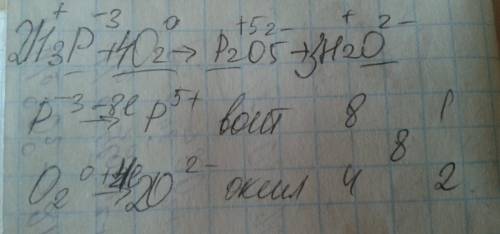 2H₃⁺P⁻³ + 4O₂⁰ → P₂⁺⁵O₅²⁻ + 3H₂⁺O²⁻
P⁻³ –8e→ P⁵⁺ восст 8 1
8
O₂⁰ +4e→ 2O²⁻ окисл 4 2